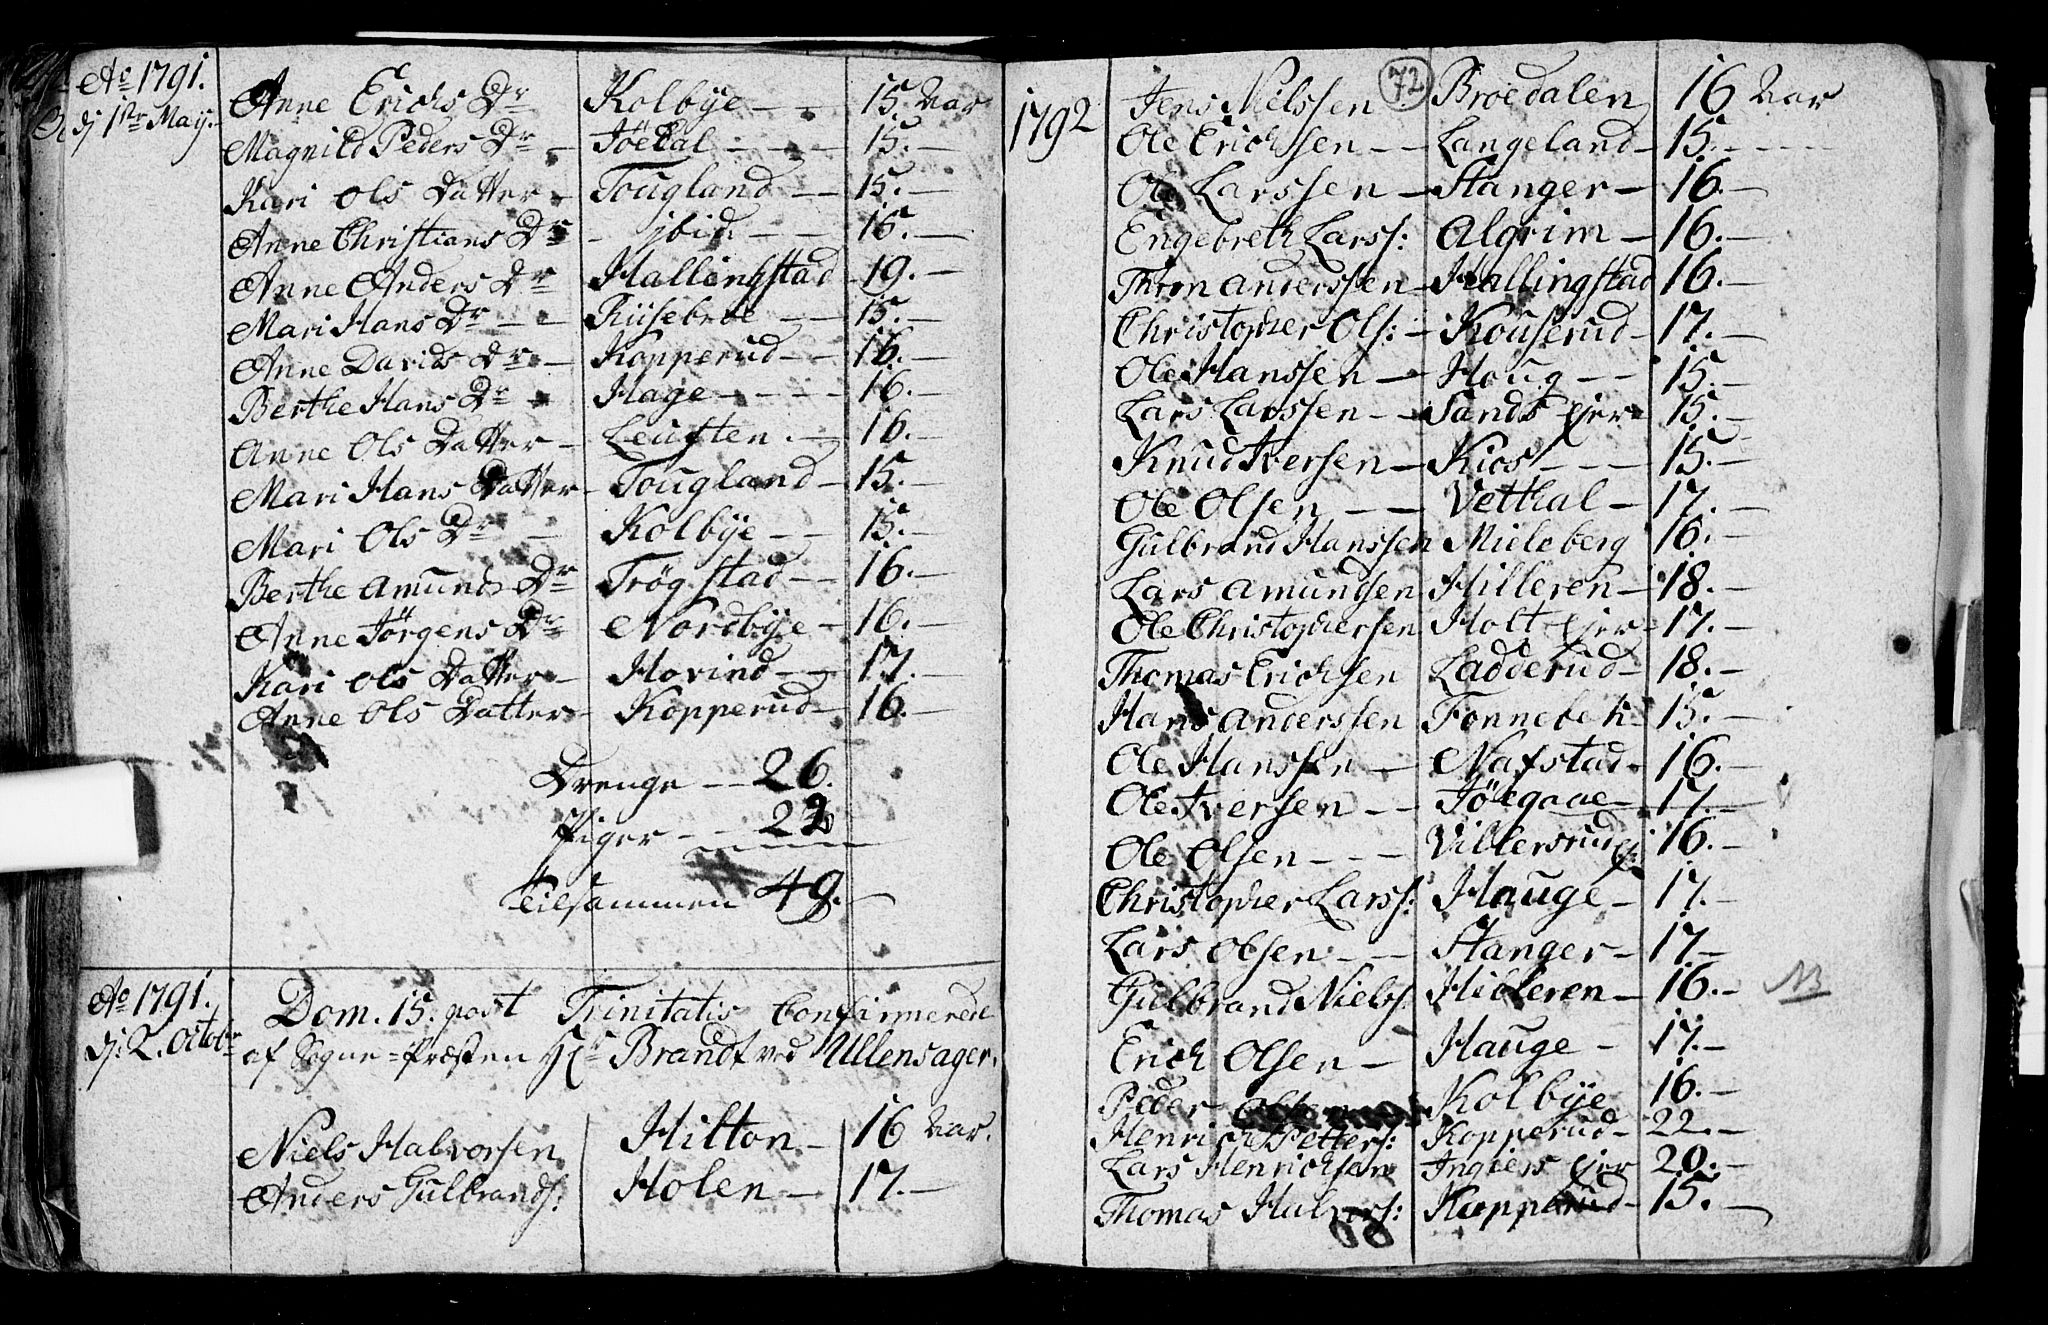 Ao 1791. Anne Erichs Dr Kolbye — 15 Aar
dj 1ste Maij. Magnild Peders Dr — — 15. —
Kari Ols Datter — Tougland — 15. —
Anne Christians Dr — ibid — 15. —
Anne Anders Dr Hallingstad — 19. —
Mari Hans Dr — Riisebroe — 15. —
Anne Davids Dr — Kopperud — 16. —
Berthe Hans Dr — Hage — 16. —
Anne Ols Datter — Leusten. — 16. —
Mari Hans Datter — Tougland — 15. —
Mari Ols Dr — Kolbye — 15. —
Berthe Amunds Dr Trøgstad — 16. —
Anne Jörgens Dr Nordbye — 16. —
Kari Ols Datter — Hovind — 17. —
Anne Ols Datter — Kopperud — 16. —
Drenge — 26.
Piger — 2
Tilsammen 49. —
Ao 1791. Dom. 15. post Trinitatis Confirmerede
dj: 2. Octobr af Sogne-Præsten Hr Brandt ved Ullensager.
Niels Halvorsen Hilton — 16 Aar.
Anders Gulbrands: Holen — 17. —
72
1792 Jens Nielssen Broedalen 16 Aar
Ole Erichssen — Langeland — 15. —
Ole Larssen — Stanger — 16. —
Engebreth Larss: Algrim — 16. —
Thron Anderssen — Hallingstad 16. —
Christopher Ols: — Kouserud — 17. —
Ole Hanssen — Houg — 15. —
Lars Larssen — Sands Ejer 15. —
Knud Iversen — Kios — 15. —
Ole Olsen — Vethal — 17. —
Gulbrand Hanssen Mieleberg 16. —
Lars Amundsen Hilleren — 18. —
Ole Christophersen Holt Ejer — 17. —
Thomas Erichsen Ladderud — 18. —
Hans Anderssen Fonnebek — 15. —
Ole Hanssen — Nafstad — 16. —
Ole Iversen — Jölegaae — 17. —
Ole Olsen — Villersrud Ej: 16. —
Christopher Larss: Hauge — 17. —
Lars Olsen — Stanger — 17. —
Gulbrand Niels: Hilleren — 16. — NB
Erich Olsen — Hauge — 17. —
Peder Kolbye 16. —
Henrich Petters: Kopperud — 22. —
Lars Henrichsen Ingiers Ejer 20. —
Thomas Halvors: Kopperud — 15. —